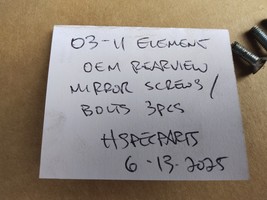 03-11 ELEMENT
OEM REARVIEW
MIRROR SCREWS/
BOLTS 3PCS
HSPECPARTS
6-13-2025